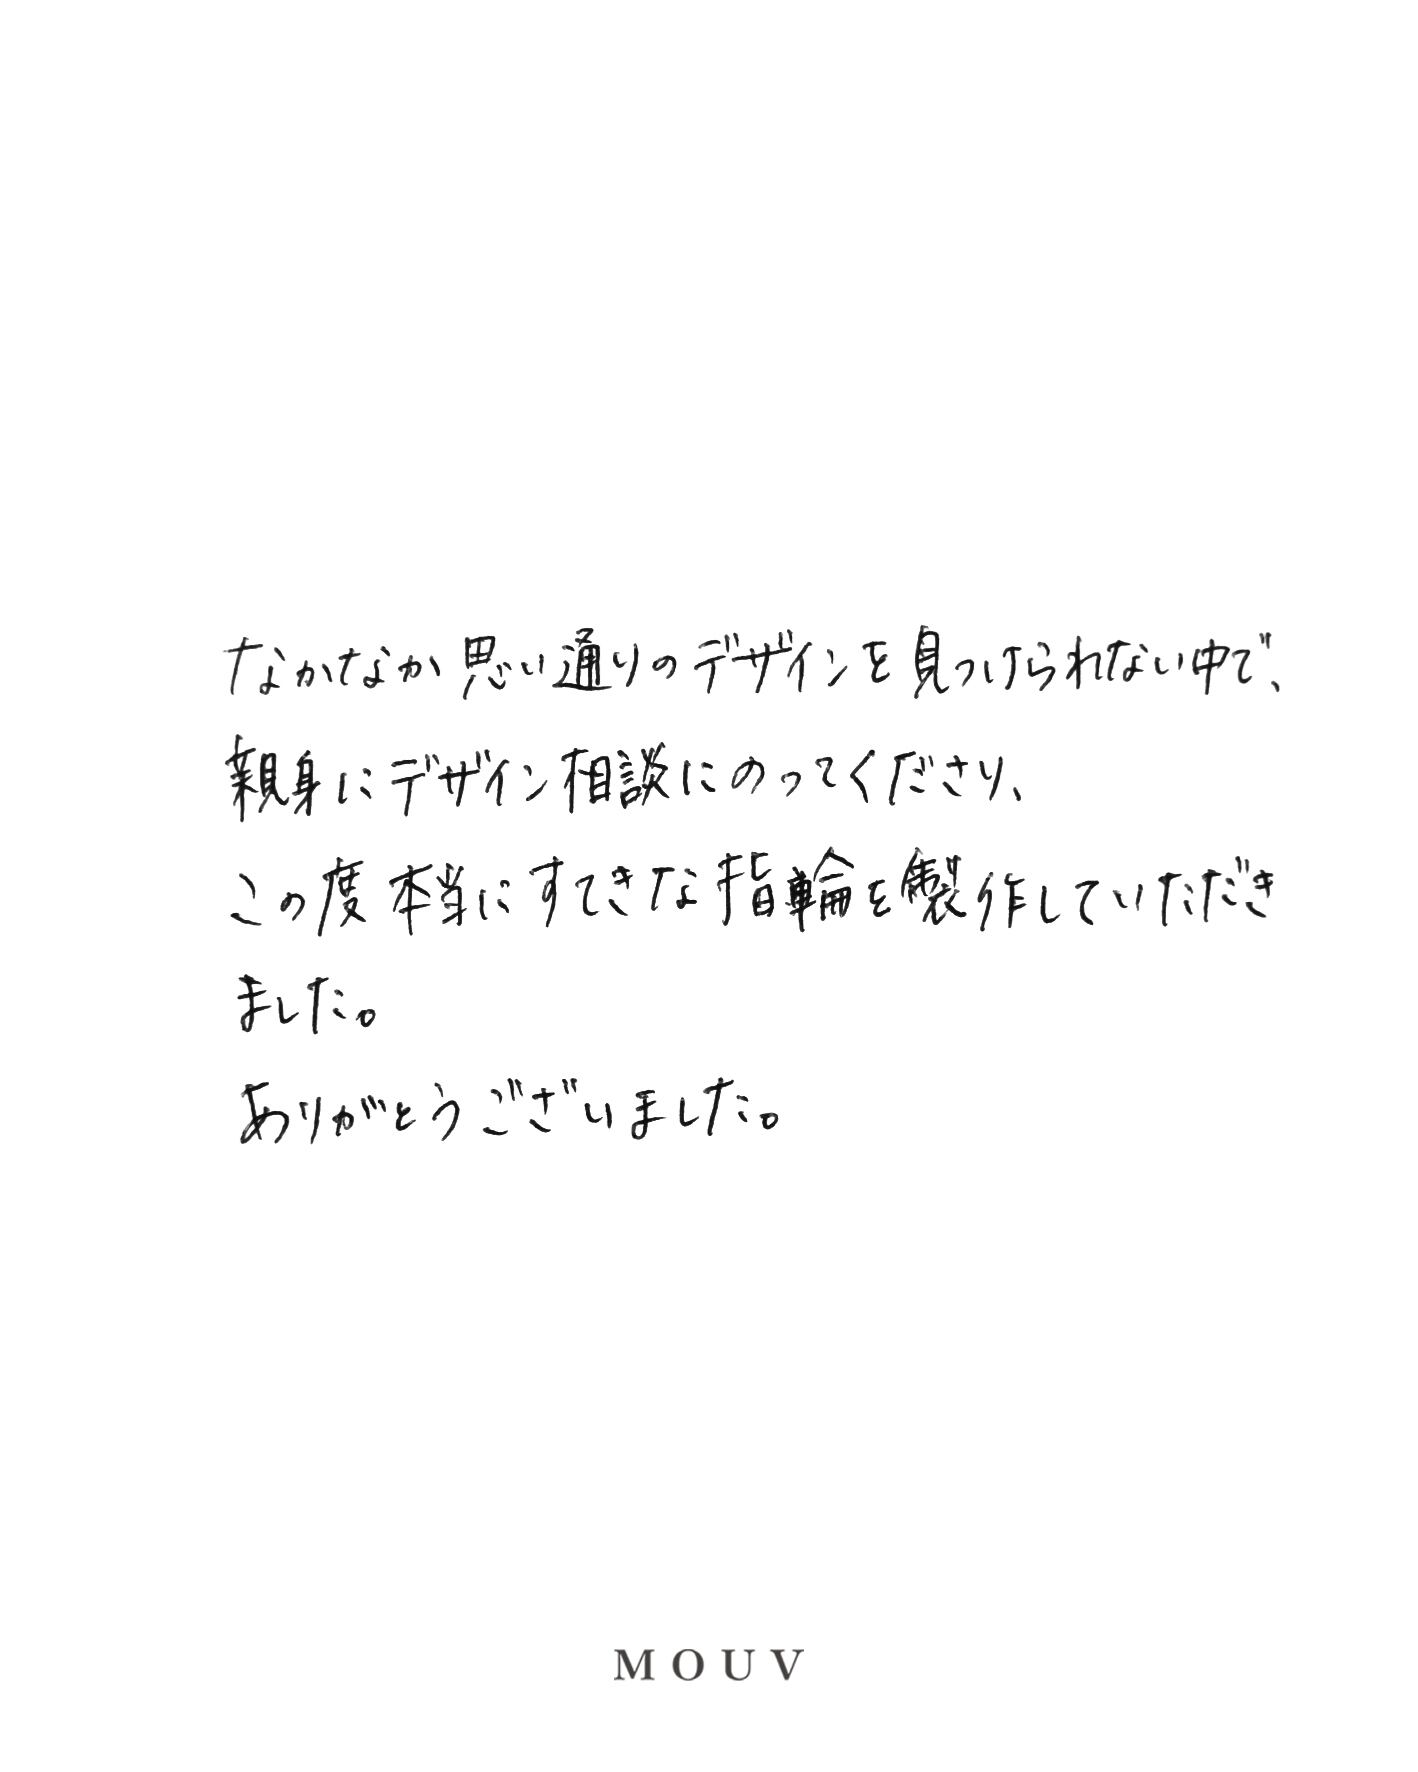 なかなか思い通りのデザインを見つけられない中で、
親身にデザイン相談にのってくださり、
この度本当にすてきな指輪を製作していただき
ました。
ありがとうございました。
MOUV